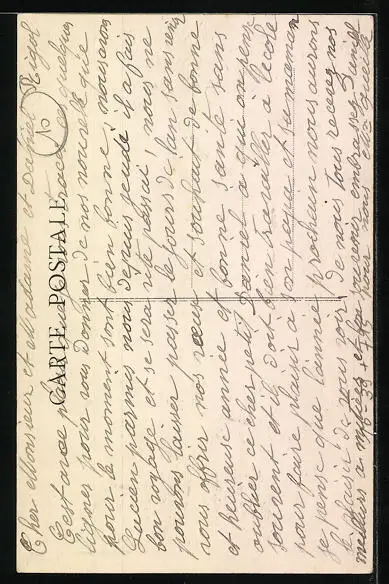 Cher Monsieur et Madame et Daniel
C'est avec quelques
lignes pour vous donner de nos nouvelles que
pour le moment sont bien bonne, nous avons
Lucien parmis nous depuis jeudi il a fais
bon voyage et se sera vite passai, nous ne
pouvons laisser passer le jours de l'an sans venir
vous offrir nos vœux et souhait de bonne
et heureuse année et bonne santé sans
oublier ce cher petit Daniel a qui on pense
souvent et il doit bien travailler a l'école
pour faire plaisir a son papa et sa maman
je pense que l'année prochain nous aurons
le plaisir de vous voir de nous tous recevez nos
meilleurs amitiés et bon embrassez Daniel
pour nous
CARTE POSTALE